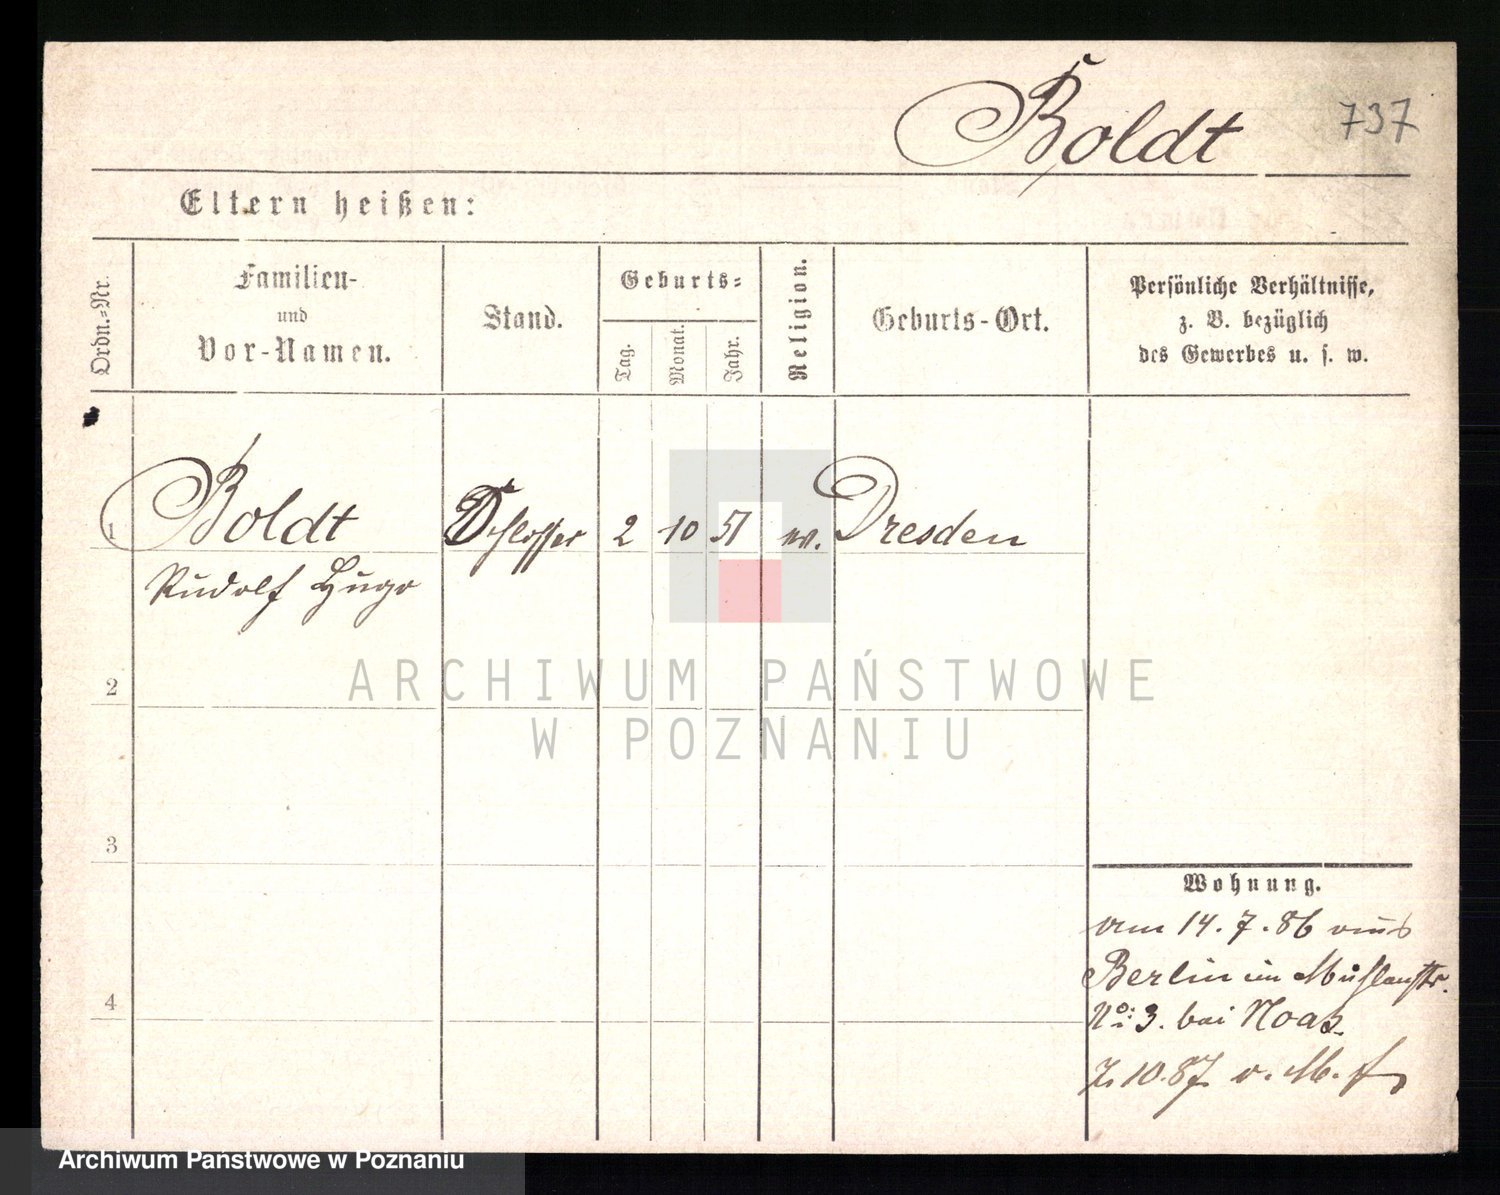 Boldt
737
Eltern heißen:
Ordn.-Nr.
Familien-
und
Vor-Namen.
Stand.
Geburts-
Tag.
Monat.
Jahr.
Religion.
Geburts-Ort.
Persönliche Verhältnisse,
z. B. bezüglich
des Gewerbes u. s. w.
1 Boldt Schlosser 2 10 51 w. Dresden
Rudolf Hugo
2
3
4
Wohnung.
am 14.7.86 aus
Berlin in Mühlenstr.
No: 3. bei Noas
7.10.87 v. M.
ARCHIWUM PAŃSTWOWE
W POZNANIU
Archiwum Państwowe w Poznaniu